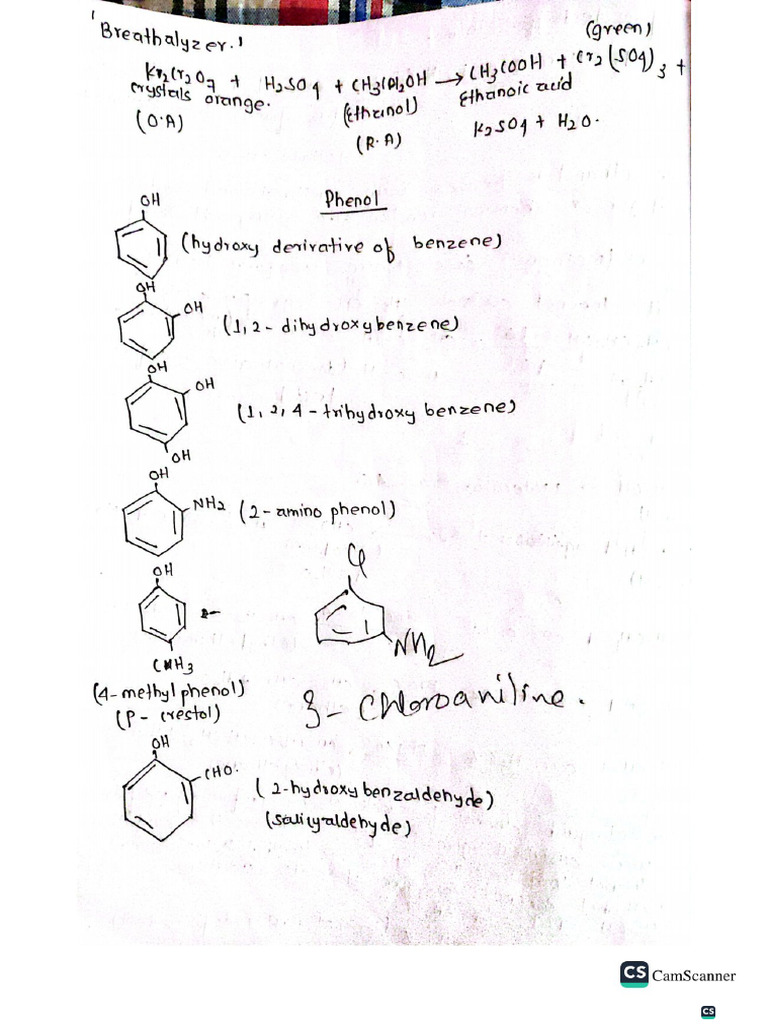 'Breathalyzer.'
(green)
K2Cr2O7 + H2SO4 + CH3CH2OH → CH3COOH + Cr2(SO4)3 +
crystals orange. (Ethanol) Ethanoic acid
(O.A) (R.A) K2SO4 + H2O.
Phenol
OH
(hydroxy derivative of benzene)
OH
OH
(1,2- dihydroxybenzene)
OH
OH
(1,2,4-trihydroxy benzene)
OH
OH
NH2 (2-amino phenol)
OH
Cl
NH2
CH3
(4-methyl phenol)
(P- crestol)
3- Chloroaniline.
OH
CHO.
(2-hydroxy benzaldehyde)
(salicyaldehyde)
CS CamScanner
CS